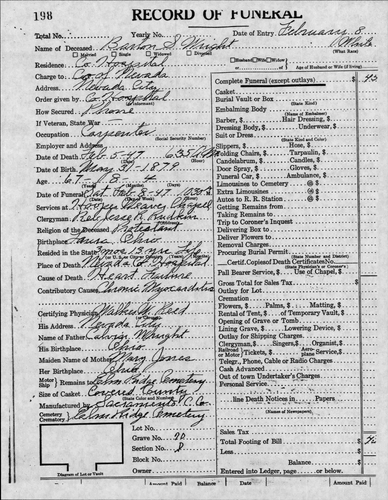 198
RECORD OF FUNERAL
Total No. Yearly No. Date of Entry February 8
Name of Deceased Barton S. Wright White
(What Race)
Married Single Widowed Divorced
Husband Wife Age of Husband or Wife (if living)
Residence Co Hospital
Charge to Co. of Nevada
Address Nevada City
Order given by Co Hospital
How Secured Phone
If Veteran, State War
Occupation Carpenter
(Social Security Number)
Employer and Address
Date of Death Feb 5-47 6:35
Date of Birth 1879
Age 67
Date of Funeral Sat. Feb. 8-47
Services at Hooper Weaver Chapel
Clergyman
Religion of the Deceased Protestant
Birthplace
Resided in the State
Place of Death Nevada Co Hospital
Cause of Death Heart Failure
Contributory Causes Chronic Myocarditis
Certifying Physician Reed
His Address Nevada City
Name of Father Wright
His Birthplace Ohio
Maiden Name of Mother Mary Jones
Her Birthplace Ohio
Motor Ship Remains to Elm Ridge Cemetery
Size of Casket Covered County
Manufactured by Sacramento C. Co.
Cemetery Crematory Elm Ridge Cemetery
Lot No.
Grave No. 70
Section No. 8
Block No.
Owner
Diagram of Lot or Vault
Complete Funeral (except outlays) $
Casket
Burial Vault or Box
(State Kind)
Embalming Body
(Name of Embalmer)
Barber, $ Hair Dressing, $
Dressing Body, $ Underwear, $
Suit or Dress
(State Kind and Color)
Slippers, $ Hose, $
Folding Chairs, $ Tarpaulin, $
Candelabrum, $ Candles, $
Door Spray, $ Gloves, $
Funeral Car, $ Ambulance, $
Limousines to Cemetery @ $
Extra Limousines @ $
Autos to R. R. Station @ $
Getting Remains from
Taking Remains to
Trip to Coroner's Inquest
Delivering Box to
Deliver Flowers to
Removal Charges
Procuring Burial Permit
(State Number and District)
Certif. Copies of Death Certificates No.
(State Physician's or Coroner's)
Pall Bearer Service, $ Use of Chapel, $
Gross Total for Sales Tax $
Outlay for Lot
Cremation
Flowers, $ Palms, $ Matting, $
Rental of Tent, $ of Temporary Vault, $
Opening of Grave or Tomb
Lining Grave, $ Lowering Device, $
Outlay for Shipping Charges
Clergyman, $ Singers, $ Organist, $
Railroad or Motor Tickets, $ Aeroplane Service, $
Telegr., Phone, Cable or Radio Charges
Cash Advanced
Out of town Undertaker's Charges
Personal Service
line Death Notices in Papers
(Names of Newspapers)
Sales Tax
Total Footing of Bill $
Less
Balance
Entered into Ledger, page or below.
Amount Paid Balance Amount Paid Balance Amount Paid